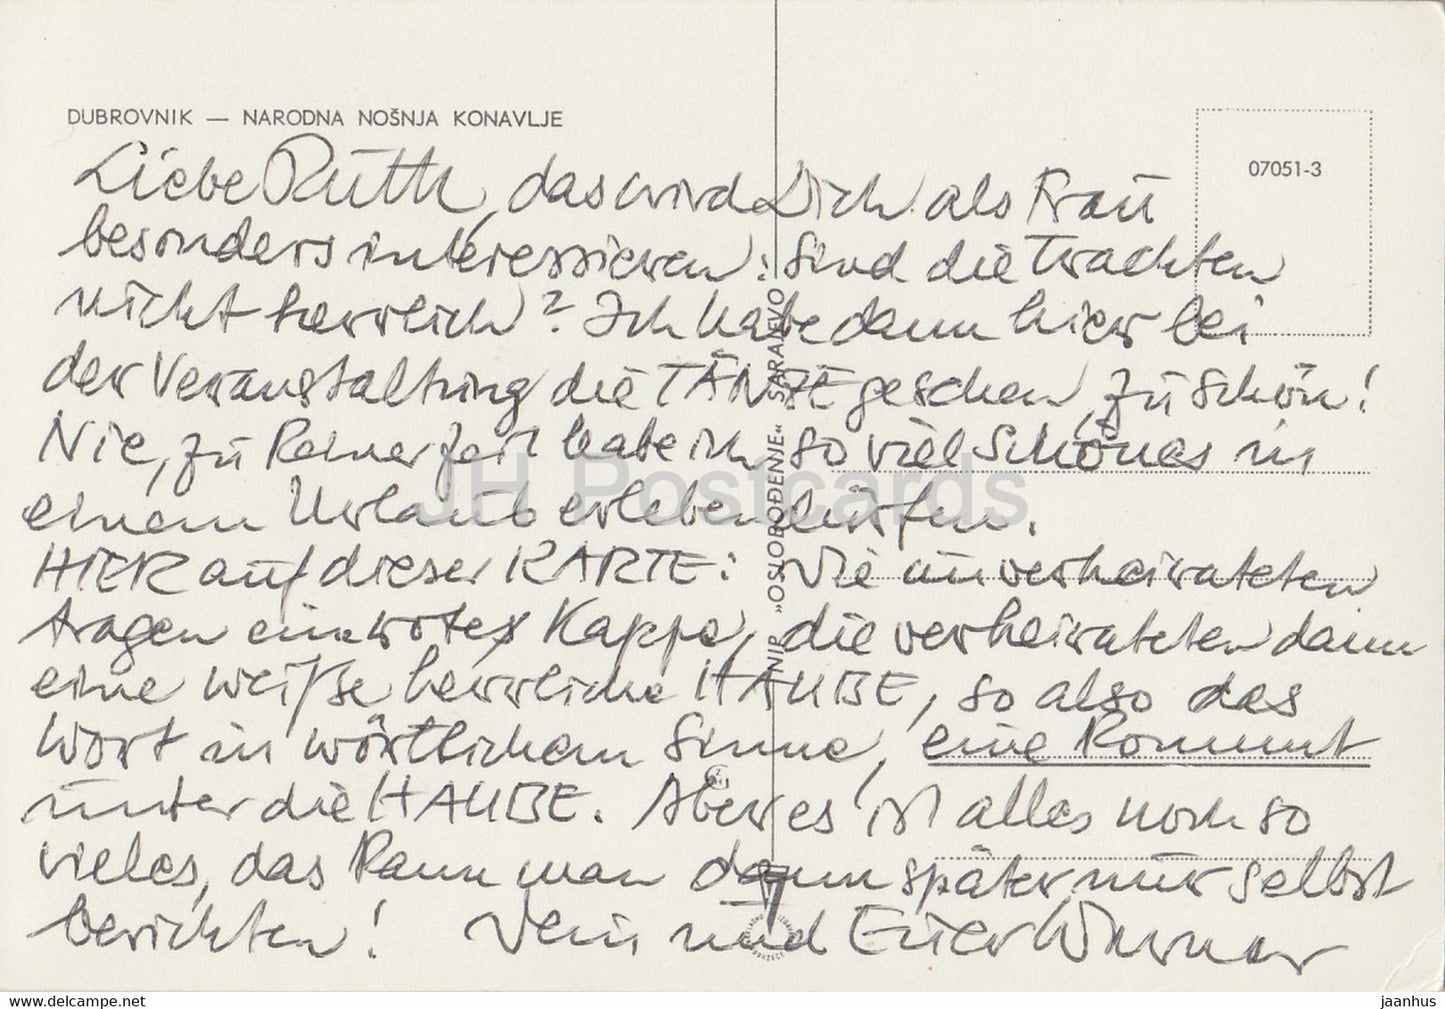 DUBROVNIK — NARODNA NOŠNJA KONAVLJE
07051-3
Liebe Ruth, das wird Dich als Frau
besonders interessieren: Sind die Trachten
nicht herrlich? Ich habe dann hier bei
der Veranstaltung die TÄNZE gesehen, zu schön!
Nie, zu keiner Zeit habe ich so viel Schönes in
einem Urlaub erleben dürfen.
HIER auf dieser KARTE: Die unverheirateten
tragen eine rote Kappe, die verheirateten dann
eine weiße herrliche HAUBE, so also das
Wort in wörtlichem Sinne, eine kommt
unter die HAUBE. Aber es ist alles noch so
vieles, das kann man dann später nur selbst
berichten! Dein und Euer Werner
NIP »OSLOBOĐENJE« SARAJEVO
JH Postcards
https://www.delcampe.net
jaanhus